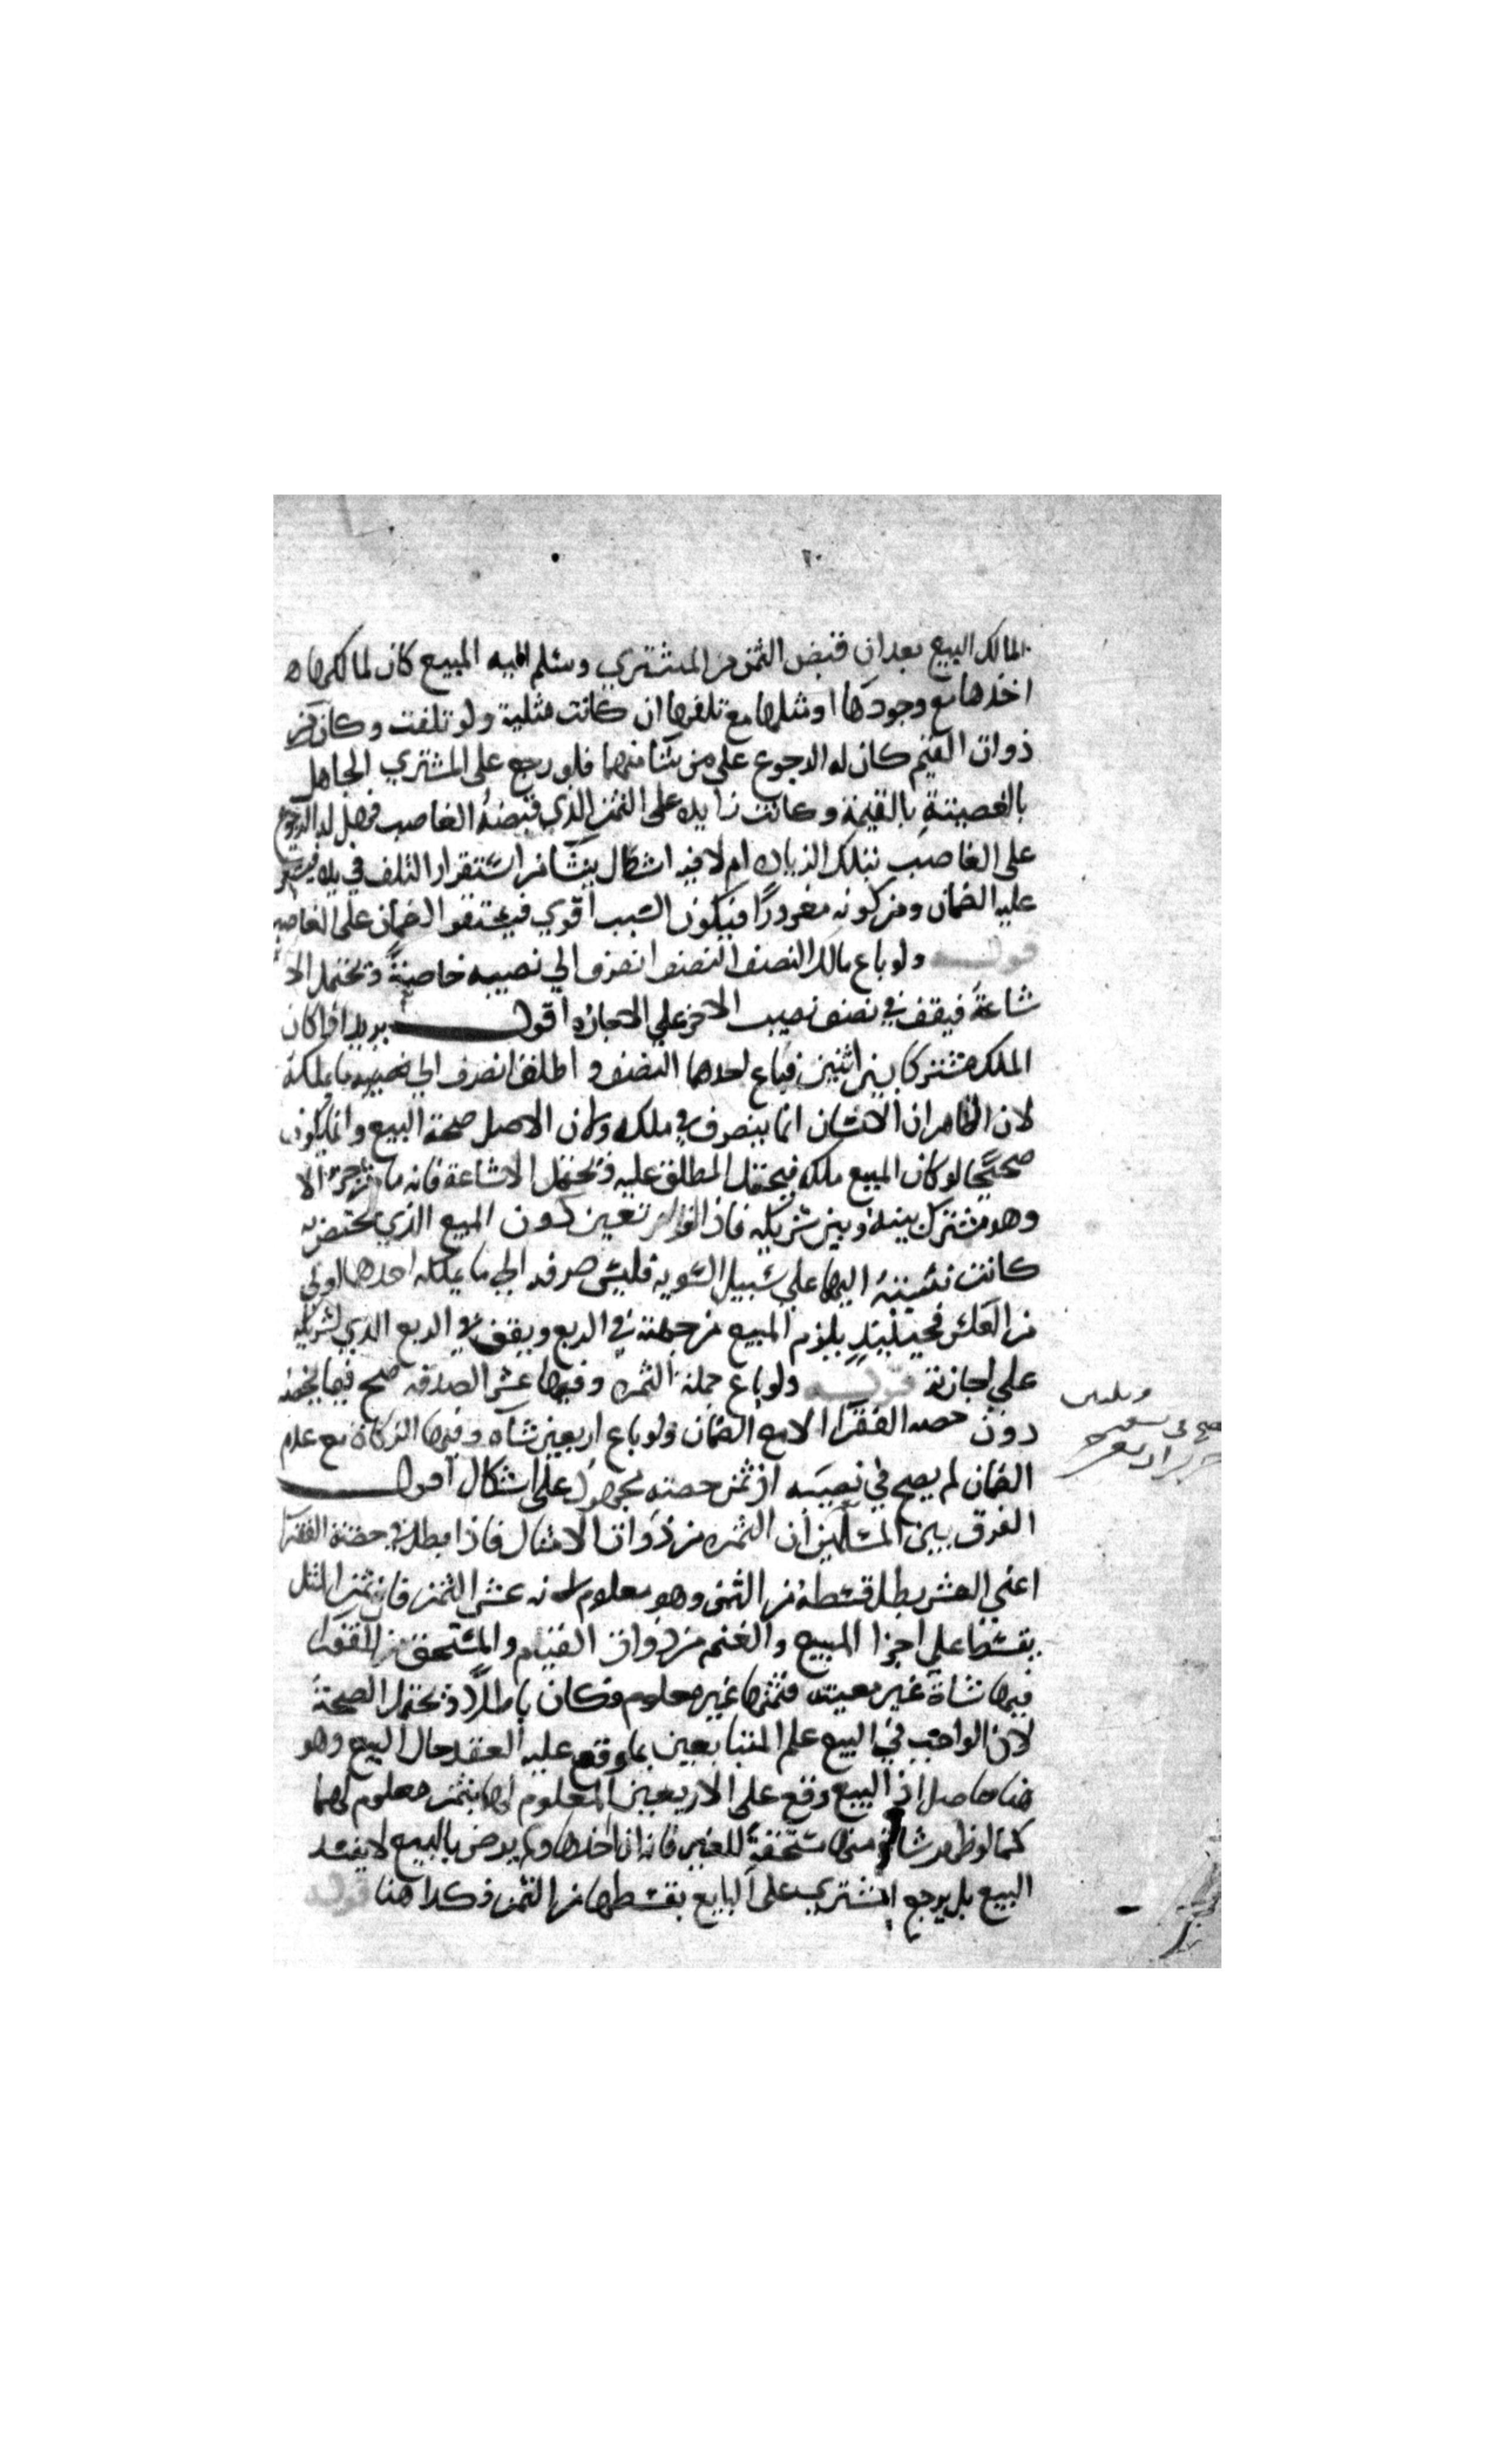 المالك البيع بعد ان قبض الثمن من المشتري وسلم اليه المبيع كان لمالكها
اخذها مع وجودها او مثلها مع تلفها ان كانت مثلية ولو تلفت وكان من
ذوات القيم كان له الرجوع على من شا منهما فلو رجع على المشتري الجاهل
بالغصبية بالقيمة وكانت زايده على الثمن الذي قبضه الغاصب فهل له الرجوع
على الغاصب بتلك الزياده ام لا فيه اشكال ينشا من استقرار التلف في يده فيستقر
عليه الضمان ومن كونه مغرورًا فيكون السبب اقوي فيستقر الضمان على الغاصب
قولـــه ولو باع مالك النصف النصف انصرف الي نصيبه خاصةً ويحتمل الا
شاعة فيقف في نصف نصيب الاخر علي الاجازه اقول يريد اذا كان
الملك مشتركا بين اثنين فباع احدهما النصف و اطلق انصرف الي نصيبه ما يملكه
لان الظاهر ان الانسان انما يتصرف في ملكه ولان الاصل صحة البيع وانما يكون
صحيحًا لو كان المبيع ملكه فيحمل المطلق عليه ويحتمل الاشاعة فانه ما من جزء الا
وهو مشترك بينه وبين شريكه فاذا لم تعين كون المبيع الذي يختص به
كانت نسبته اليهما علي سبيل السويه فليس صرفه الي ما يملكه احدهما اولي
من العكس فحينئيذٍ يلزم المبيع من جهته في الربع ويقف في الربع الذي لشريكه
علي اجازته قولـــه ولو باع جملة الثمره وفيها عشر الصدقه صح فيما يخصه
دون حصه الفقرا الا مع الضمان ولو باع اربعين شاه وفيها الزكاة مع عدم
الضمان لم يصح في نصيبه اذ ثمن حصته مجهول على اشكال اقول
الفرق بين المسلتين ان الثمره من ذوات الامثال فاذا بطل في حصة الفقرا
اعني العشر بطل قسطه من الثمن وهو معلوم لانه عشر الثمن فان ثمن المثل
يقسط علي اجزا المبيع والغنم من ذوات القيم والمستحق من للفقرا
فيها شاة غير معينه فثمنها غير معلوم فكان باطلًا ويحتمل الصحة
لان الواجب في البيع علم المتبايعين بما وقع عليه العقد حال البيع وهو
هنا حاصل اذ البيع وقع على الاربعين المعلوم لهما بثمن معلوم لهما
كما لو ظهر شاة منها مستحقة للغير فانه اذا اخذها ولم يرض بالبيع لا يفسد
البيع بل يرجع المشتري على البايع بقسطها من الثمن فكذا هنا قوله